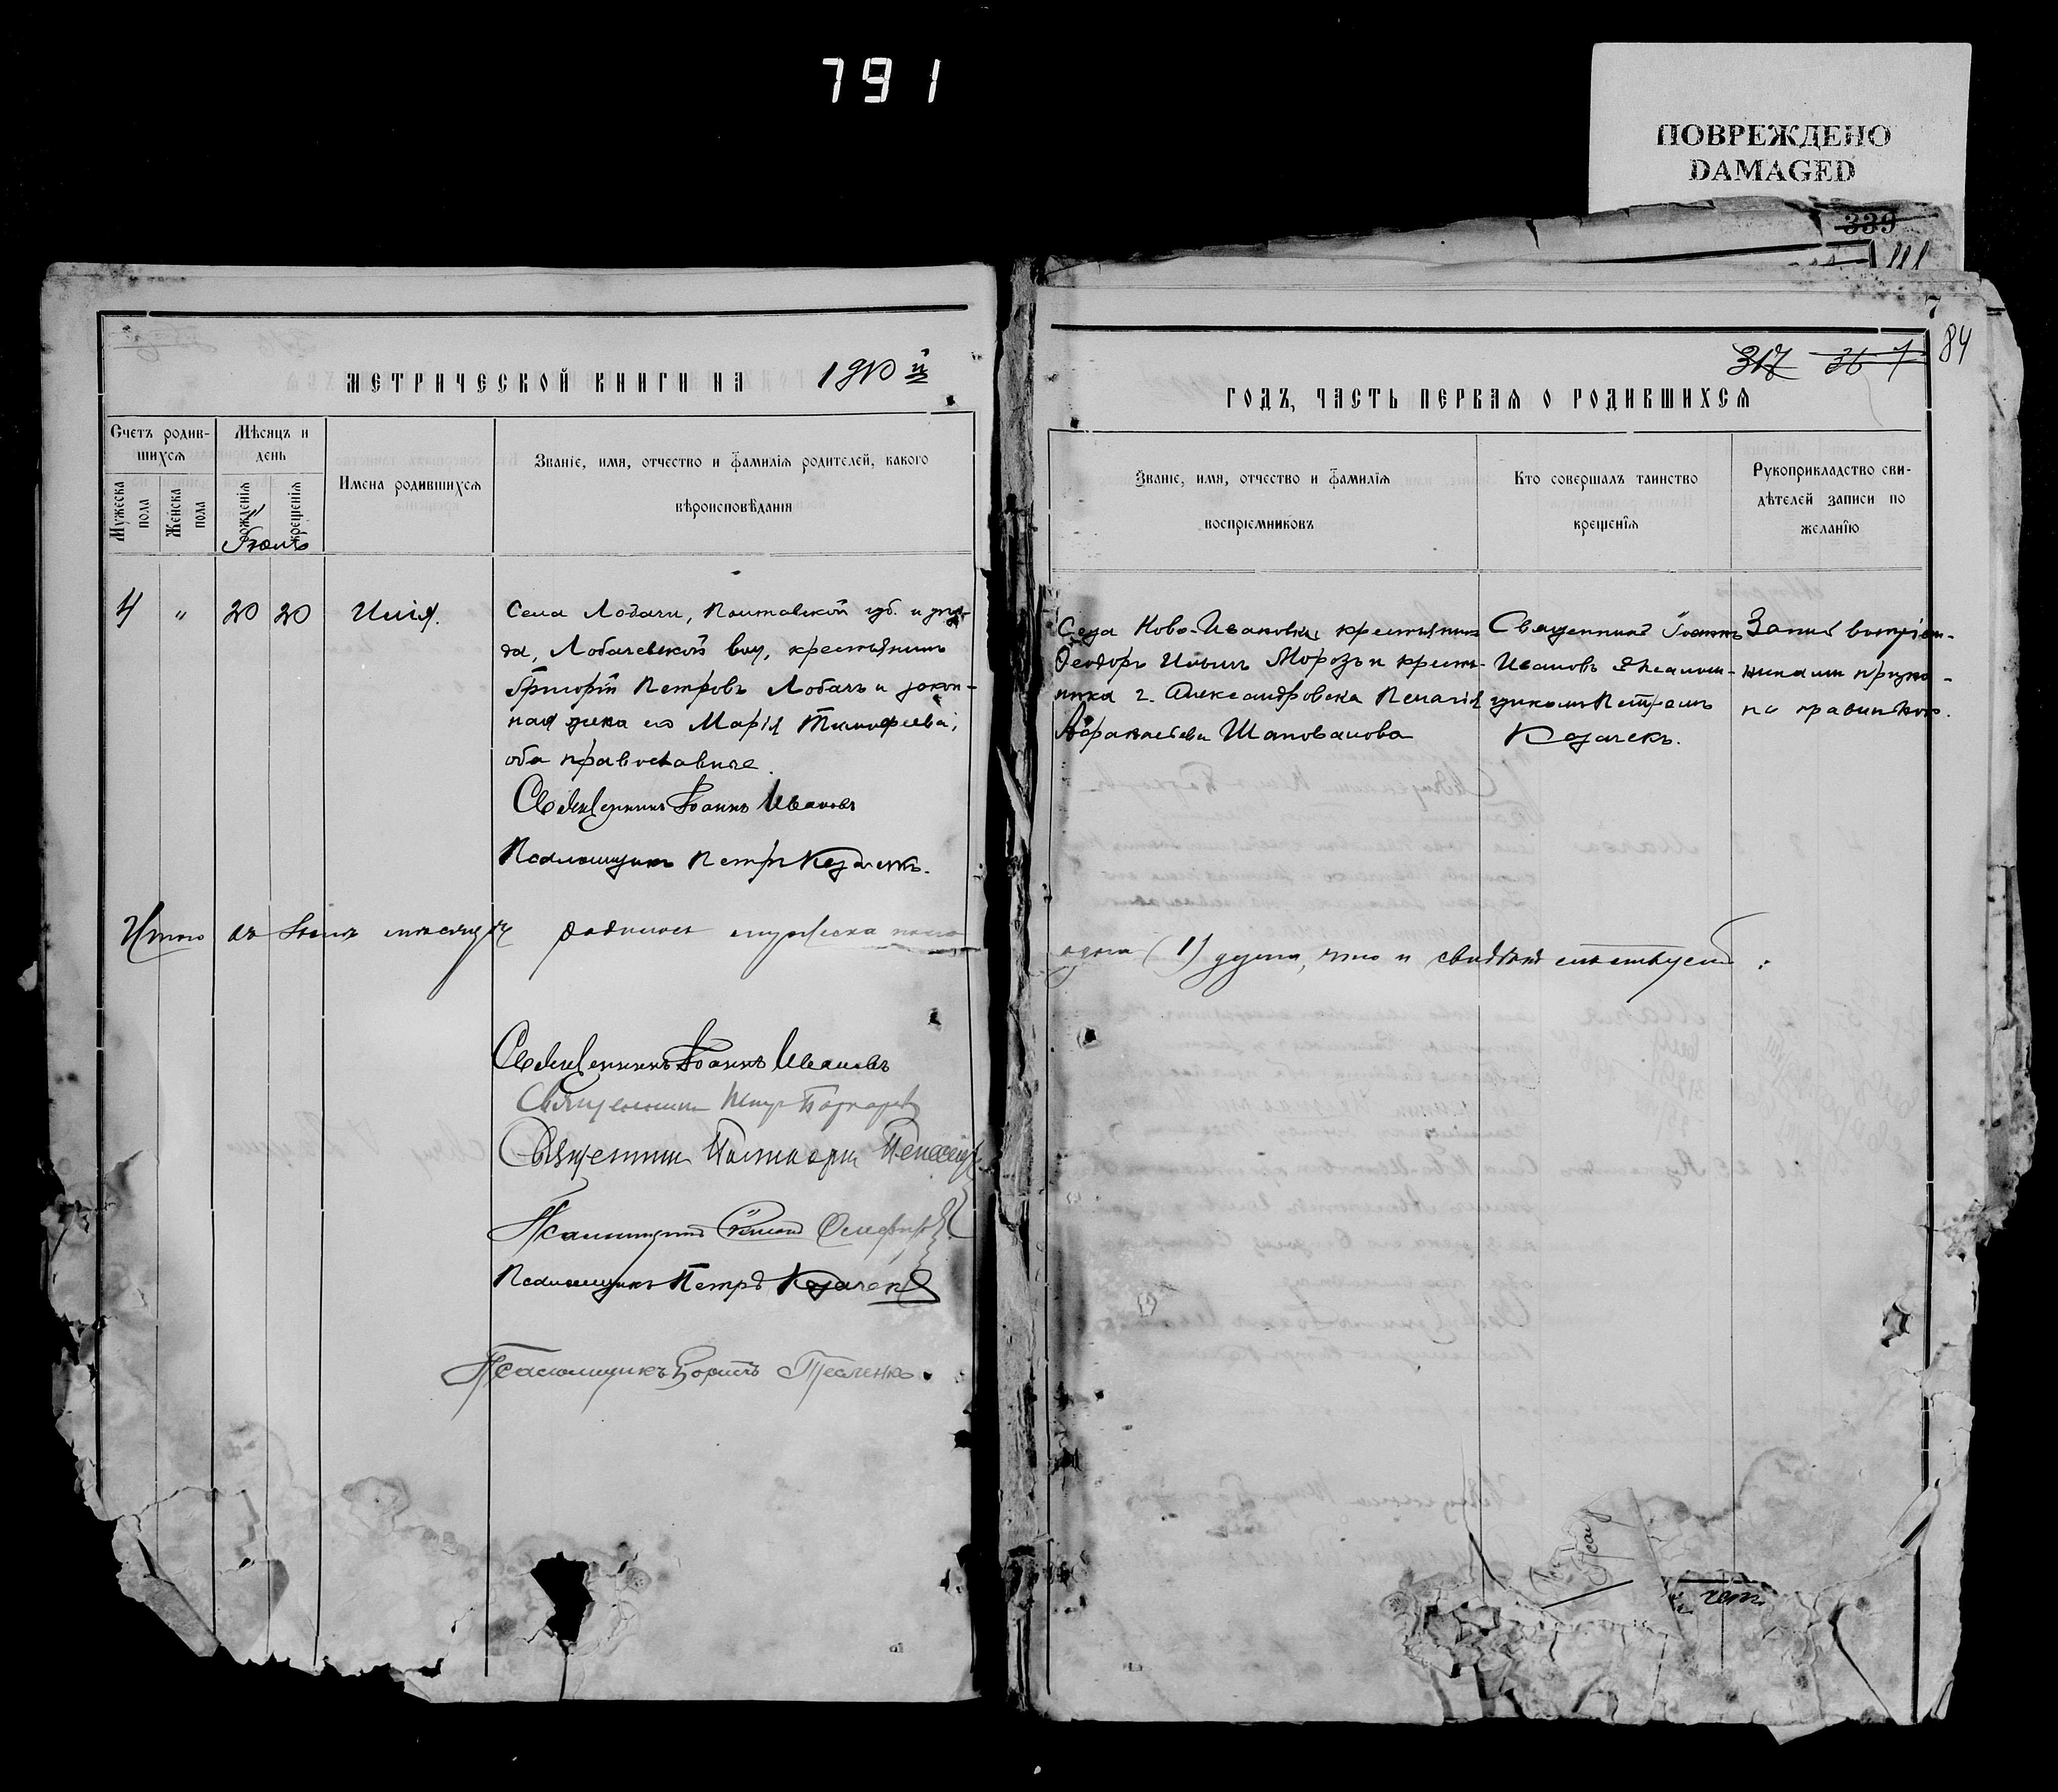 791
ПОВРЕЖДЕНО
DAMAGED
339
111
7
84
317 36 7
МЕТРИЧЕСКОЙ КНИГИ НА 1910 й
ГОДЪ, ЧАСТЬ ПЕРВАЯ О РОДИВШИХСЯ
Счетъ родив-
шихся
Мужеска
пола
Женска
пола
Мѣсяцъ и
день
рожденія
крещенія
Имена родившихся
Званіе, имя, отчество и фамилія родителей, какого
вѣроисповѣданія
Званіе, имя, отчество и фамилія
воспріемниковъ
Кто совершалъ таинство
крещенія
Рукоприкладство сви-
дѣтелей записи по
желанію
4 " 20 20 Илія.
Села Лобачи, Полтавской губ. и уѣз-
да, Лобачевской вол, крестьянинъ
Григорій Петровъ Лобачъ и закон-
ная жена его Марія Тимофеева,
оба православные.
Священникъ Іоаннъ Ивановъ
Псаломщикъ Петръ Козачекъ.
Села Ново-Ивановки, крестьянинъ
Феодоръ Ильинъ Морозъ и крестья-
нка г. Александровска Пелагія
Афанасіева Шаповалова
Священникъ Іоаннъ
Ивановъ съ псалом-
щикомъ Петромъ
Козачекъ.
Запись воспріем-
никами
Итого въ мѣсяцѣ родилось мужеска пола
одна (1) душа, что и свидѣтельствуемъ:
Священникъ Іоаннъ Ивановъ
Священникъ
Священникъ
Псаломщикъ
Псаломщикъ Петръ Козачекъ
Псаломщикъ Борисъ Тесленко.